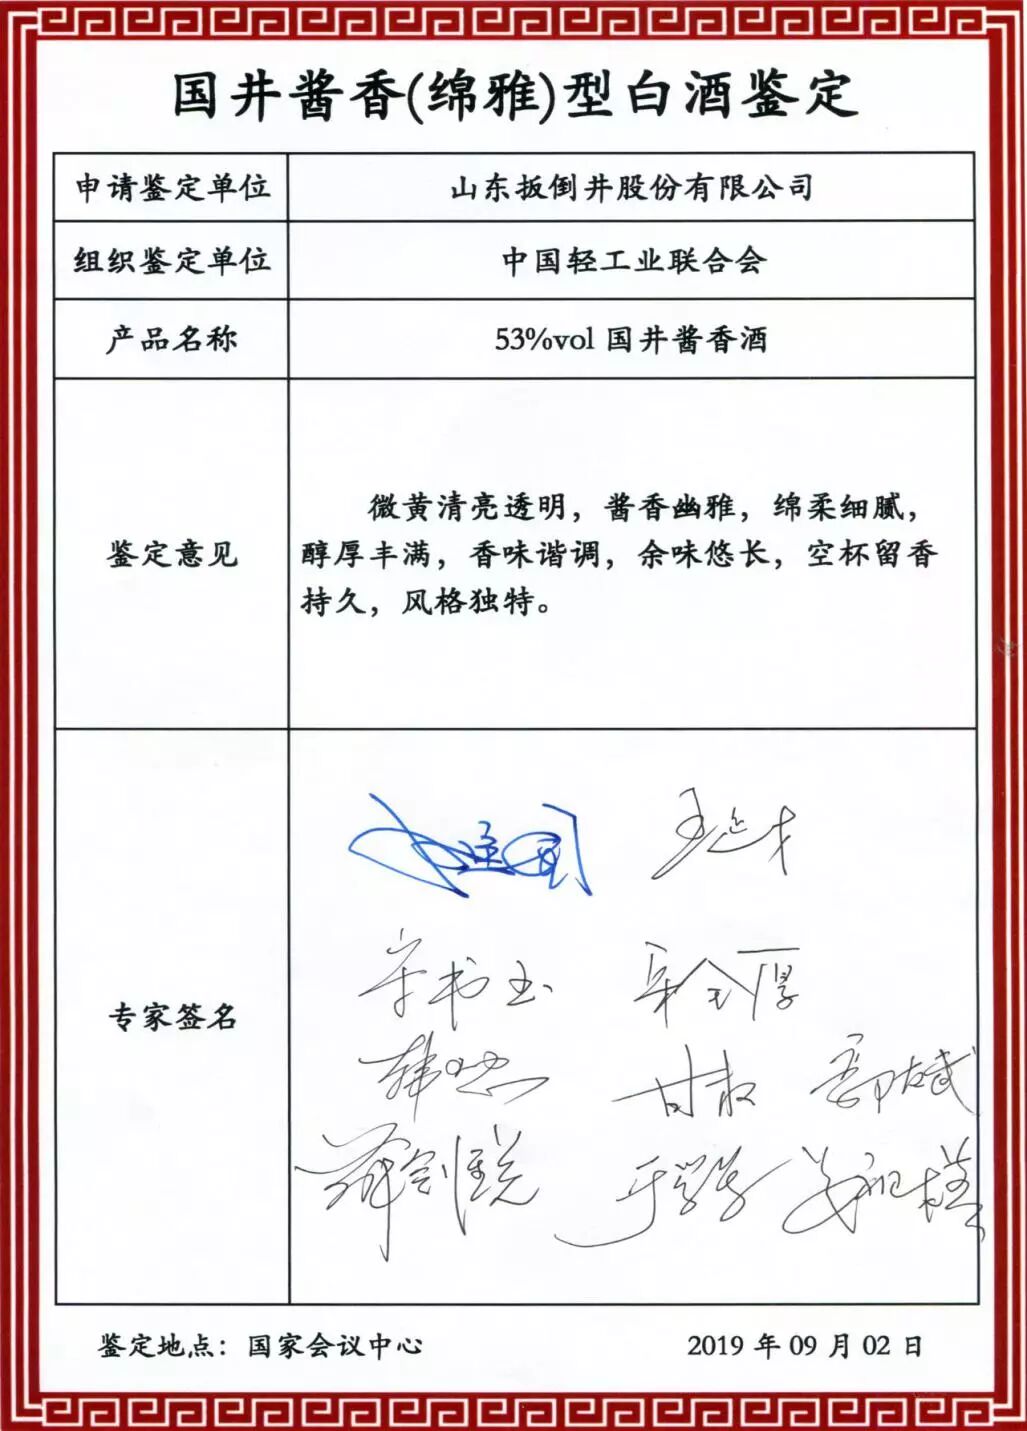 国井酱香(绵雅)型白酒鉴定
申请鉴定单位 山东扳倒井股份有限公司
组织鉴定单位 中国轻工业联合会
产品名称 53%vol 国井酱香酒
鉴定意见
微黄清亮透明，酱香幽雅，绵柔细腻，
醇厚丰满，香味谐调，余味悠长，空杯留香
持久，风格独特。
专家签名
王延才
宋书玉
甘权
鉴定地点：国家会议中心 2019 年 09 月 02 日